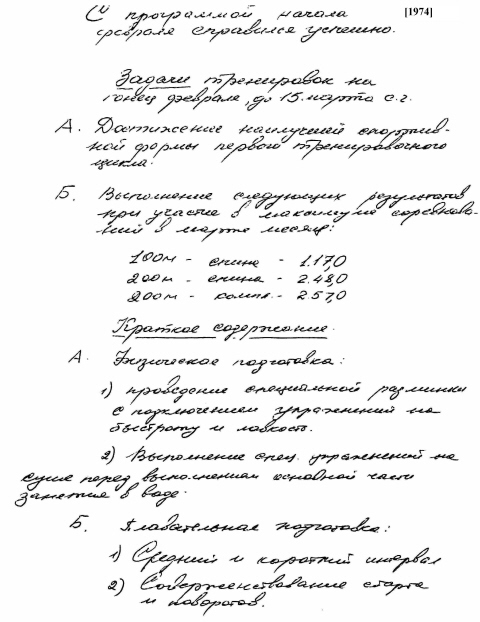 С программой начала [1974]
февраля справился успешно.
Задачи тренировок на
конец февраля, до 15.марта с.г.
А. Достижение наилучшей спортив-
ной формы первого тренировочного
цикла.
Б. Выполнение следующих результатов
при участие в максимуме соревнова-
ний в марте месяце:
100м - спина - 1.17,0
200м - спина - 2.48,0
200м - компл. - 2.57,0
Краткое содержание.
А. Физическое подготовка:
1) проведение специальной разминки
с подключением упражнений на
быстроту и ловкость.
2) Выполнение спец. упражнений на
суше перед выполнением основной части
занятия в воде.
Б. Плавательная подготовка:
1) Средний и короткий интервал
2) Совершенствование старта
и поворотов.